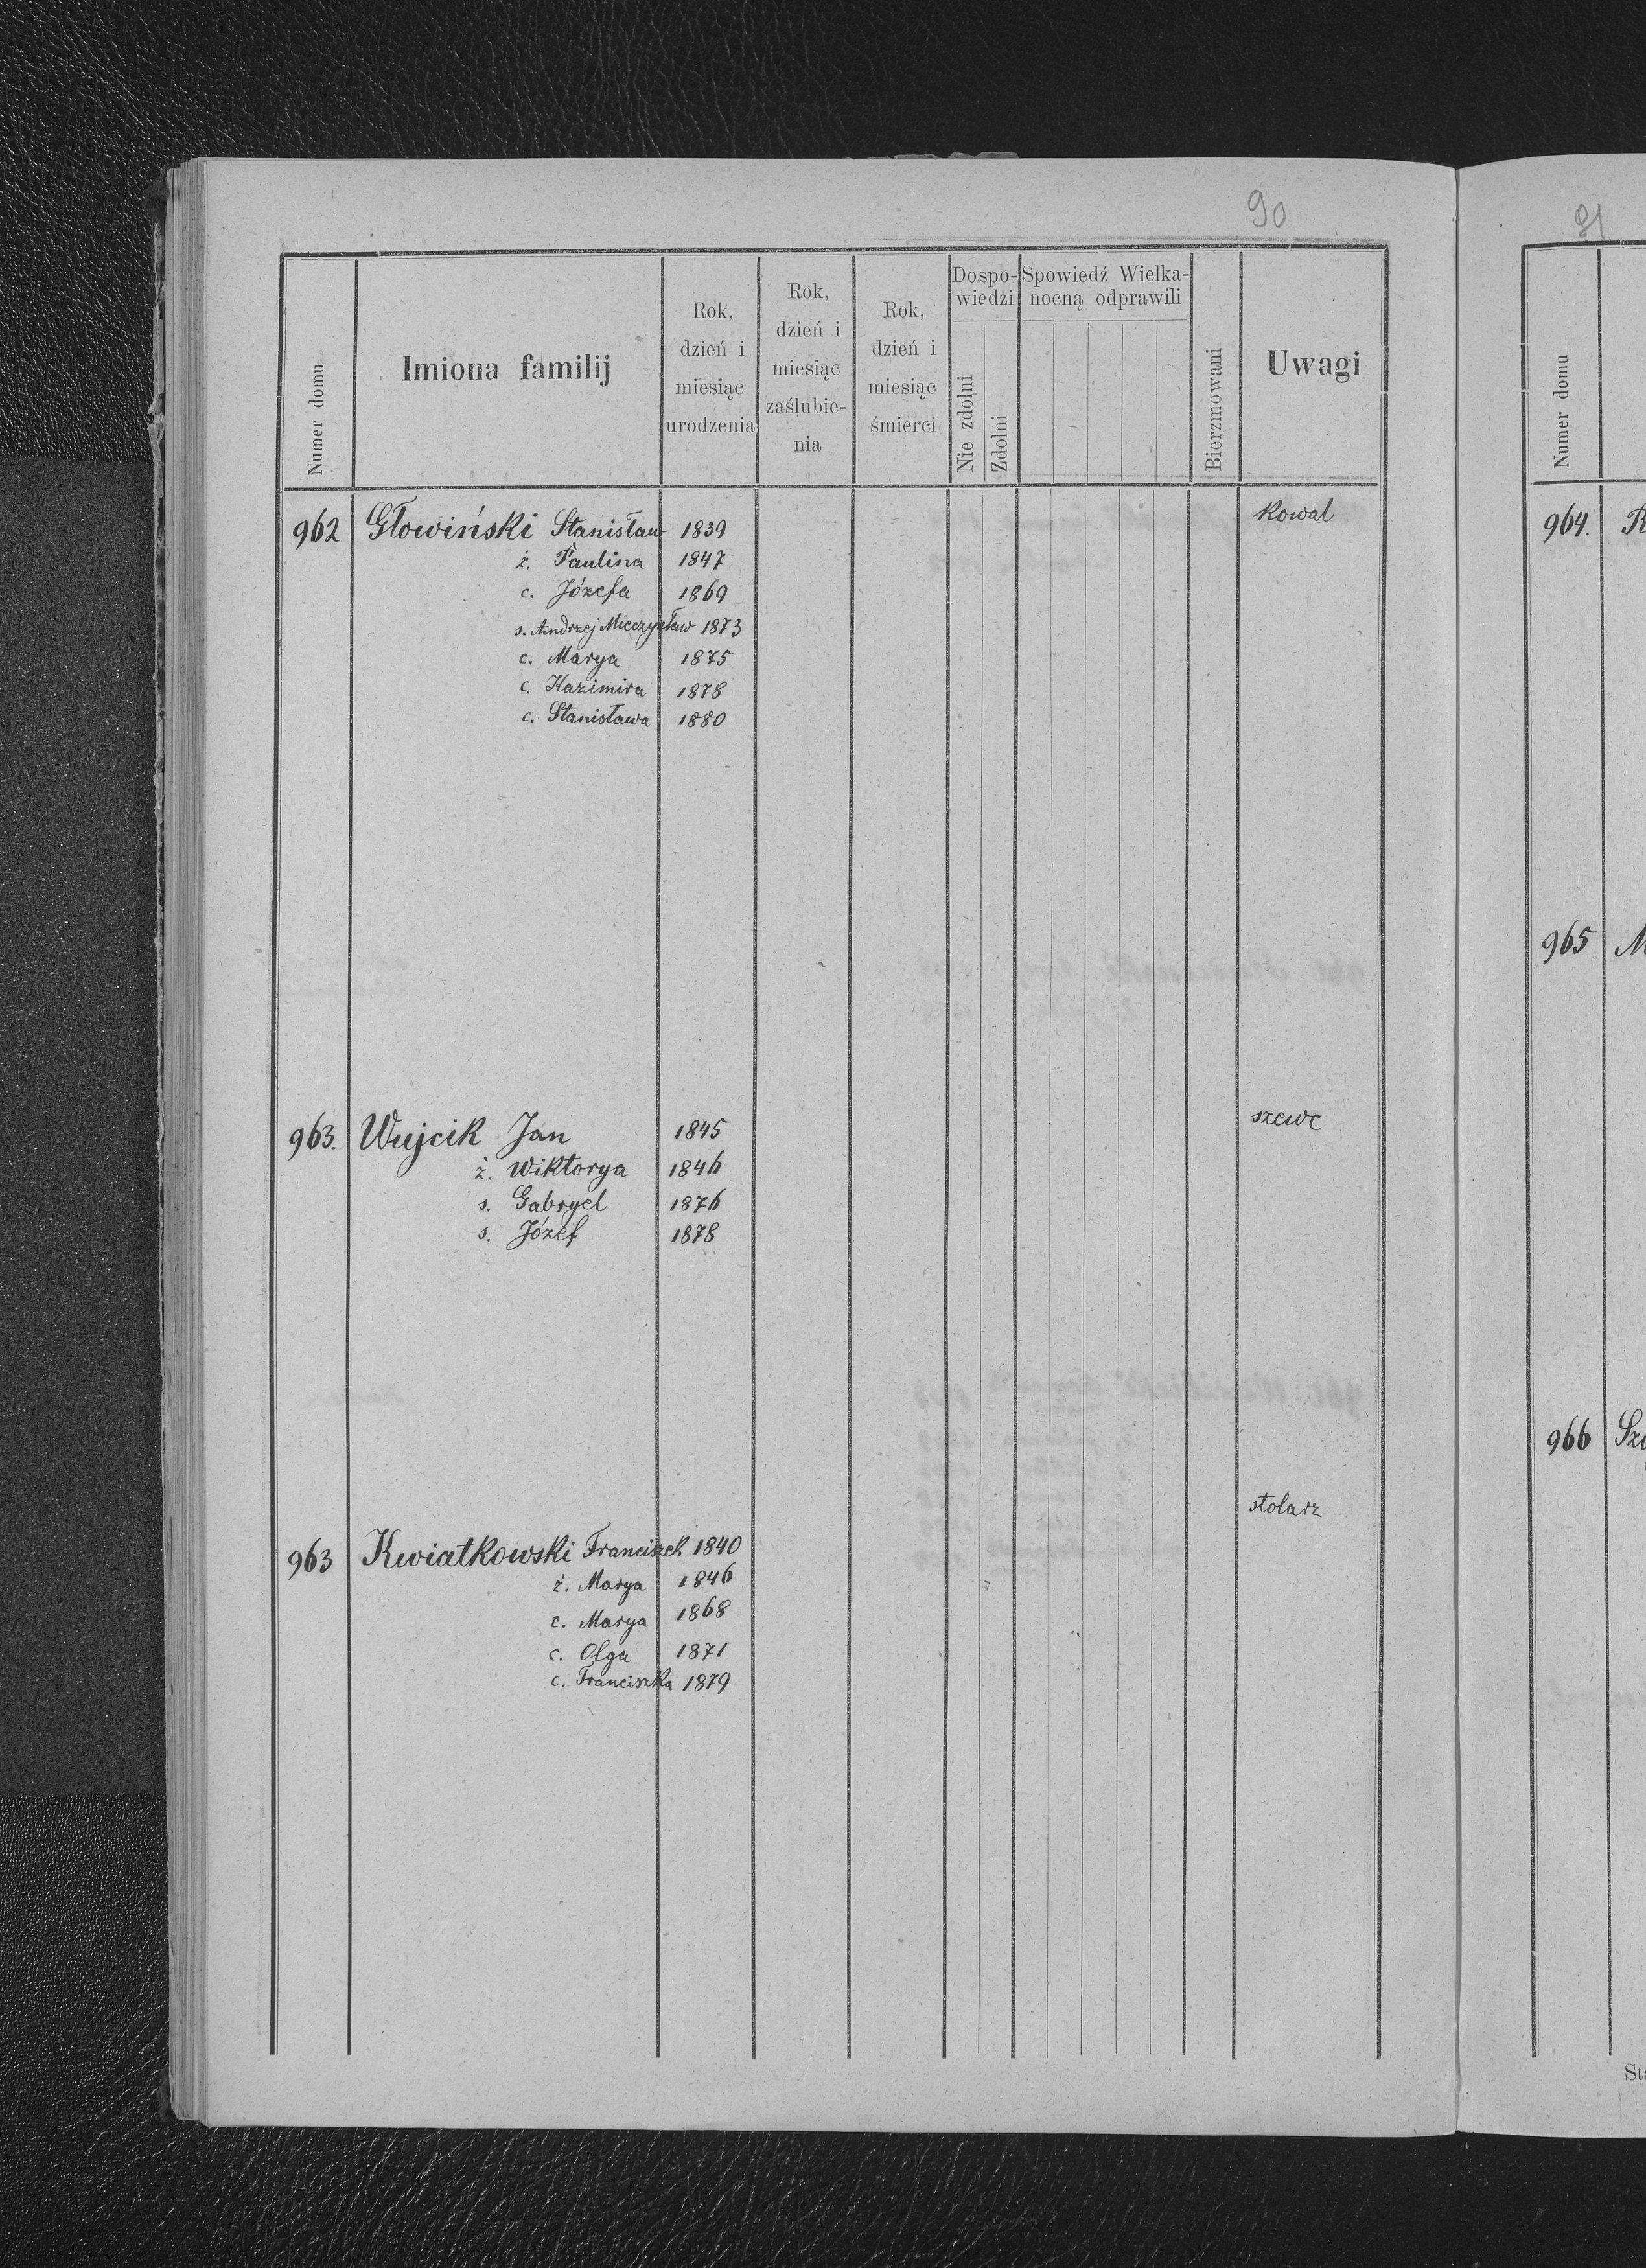 90
Numer domu
Imiona familij
Rok, dzień i miesiąc urodzenia
Rok, dzień i miesiąc zaślubienia
Rok, dzień i miesiąc śmierci
Dospowiedzi
Nie zdolni
Zdolni
Spowiedź Wielkanocną odprawili
Bierzmowani
Uwagi
962 Głowiński Stanisław 1839 kowal
ż. Paulina 1847
c. Józefa 1869
s. Andrzej Mieczysław 1873
c. Marya 1875
c. Kazimira 1878
c. Stanisława 1880
963. Wujcik Jan 1845 szewc
ż. Wiktorya 1846
s. Gabryel 1876
s. Józef 1878
963 Kwiatkowski Franciszek 1840 stolarz
ż. Marya 1846
c. Marya 1868
c. Olga 1871
c. Franciszka 1879
91
Numer domu
964.
965
966